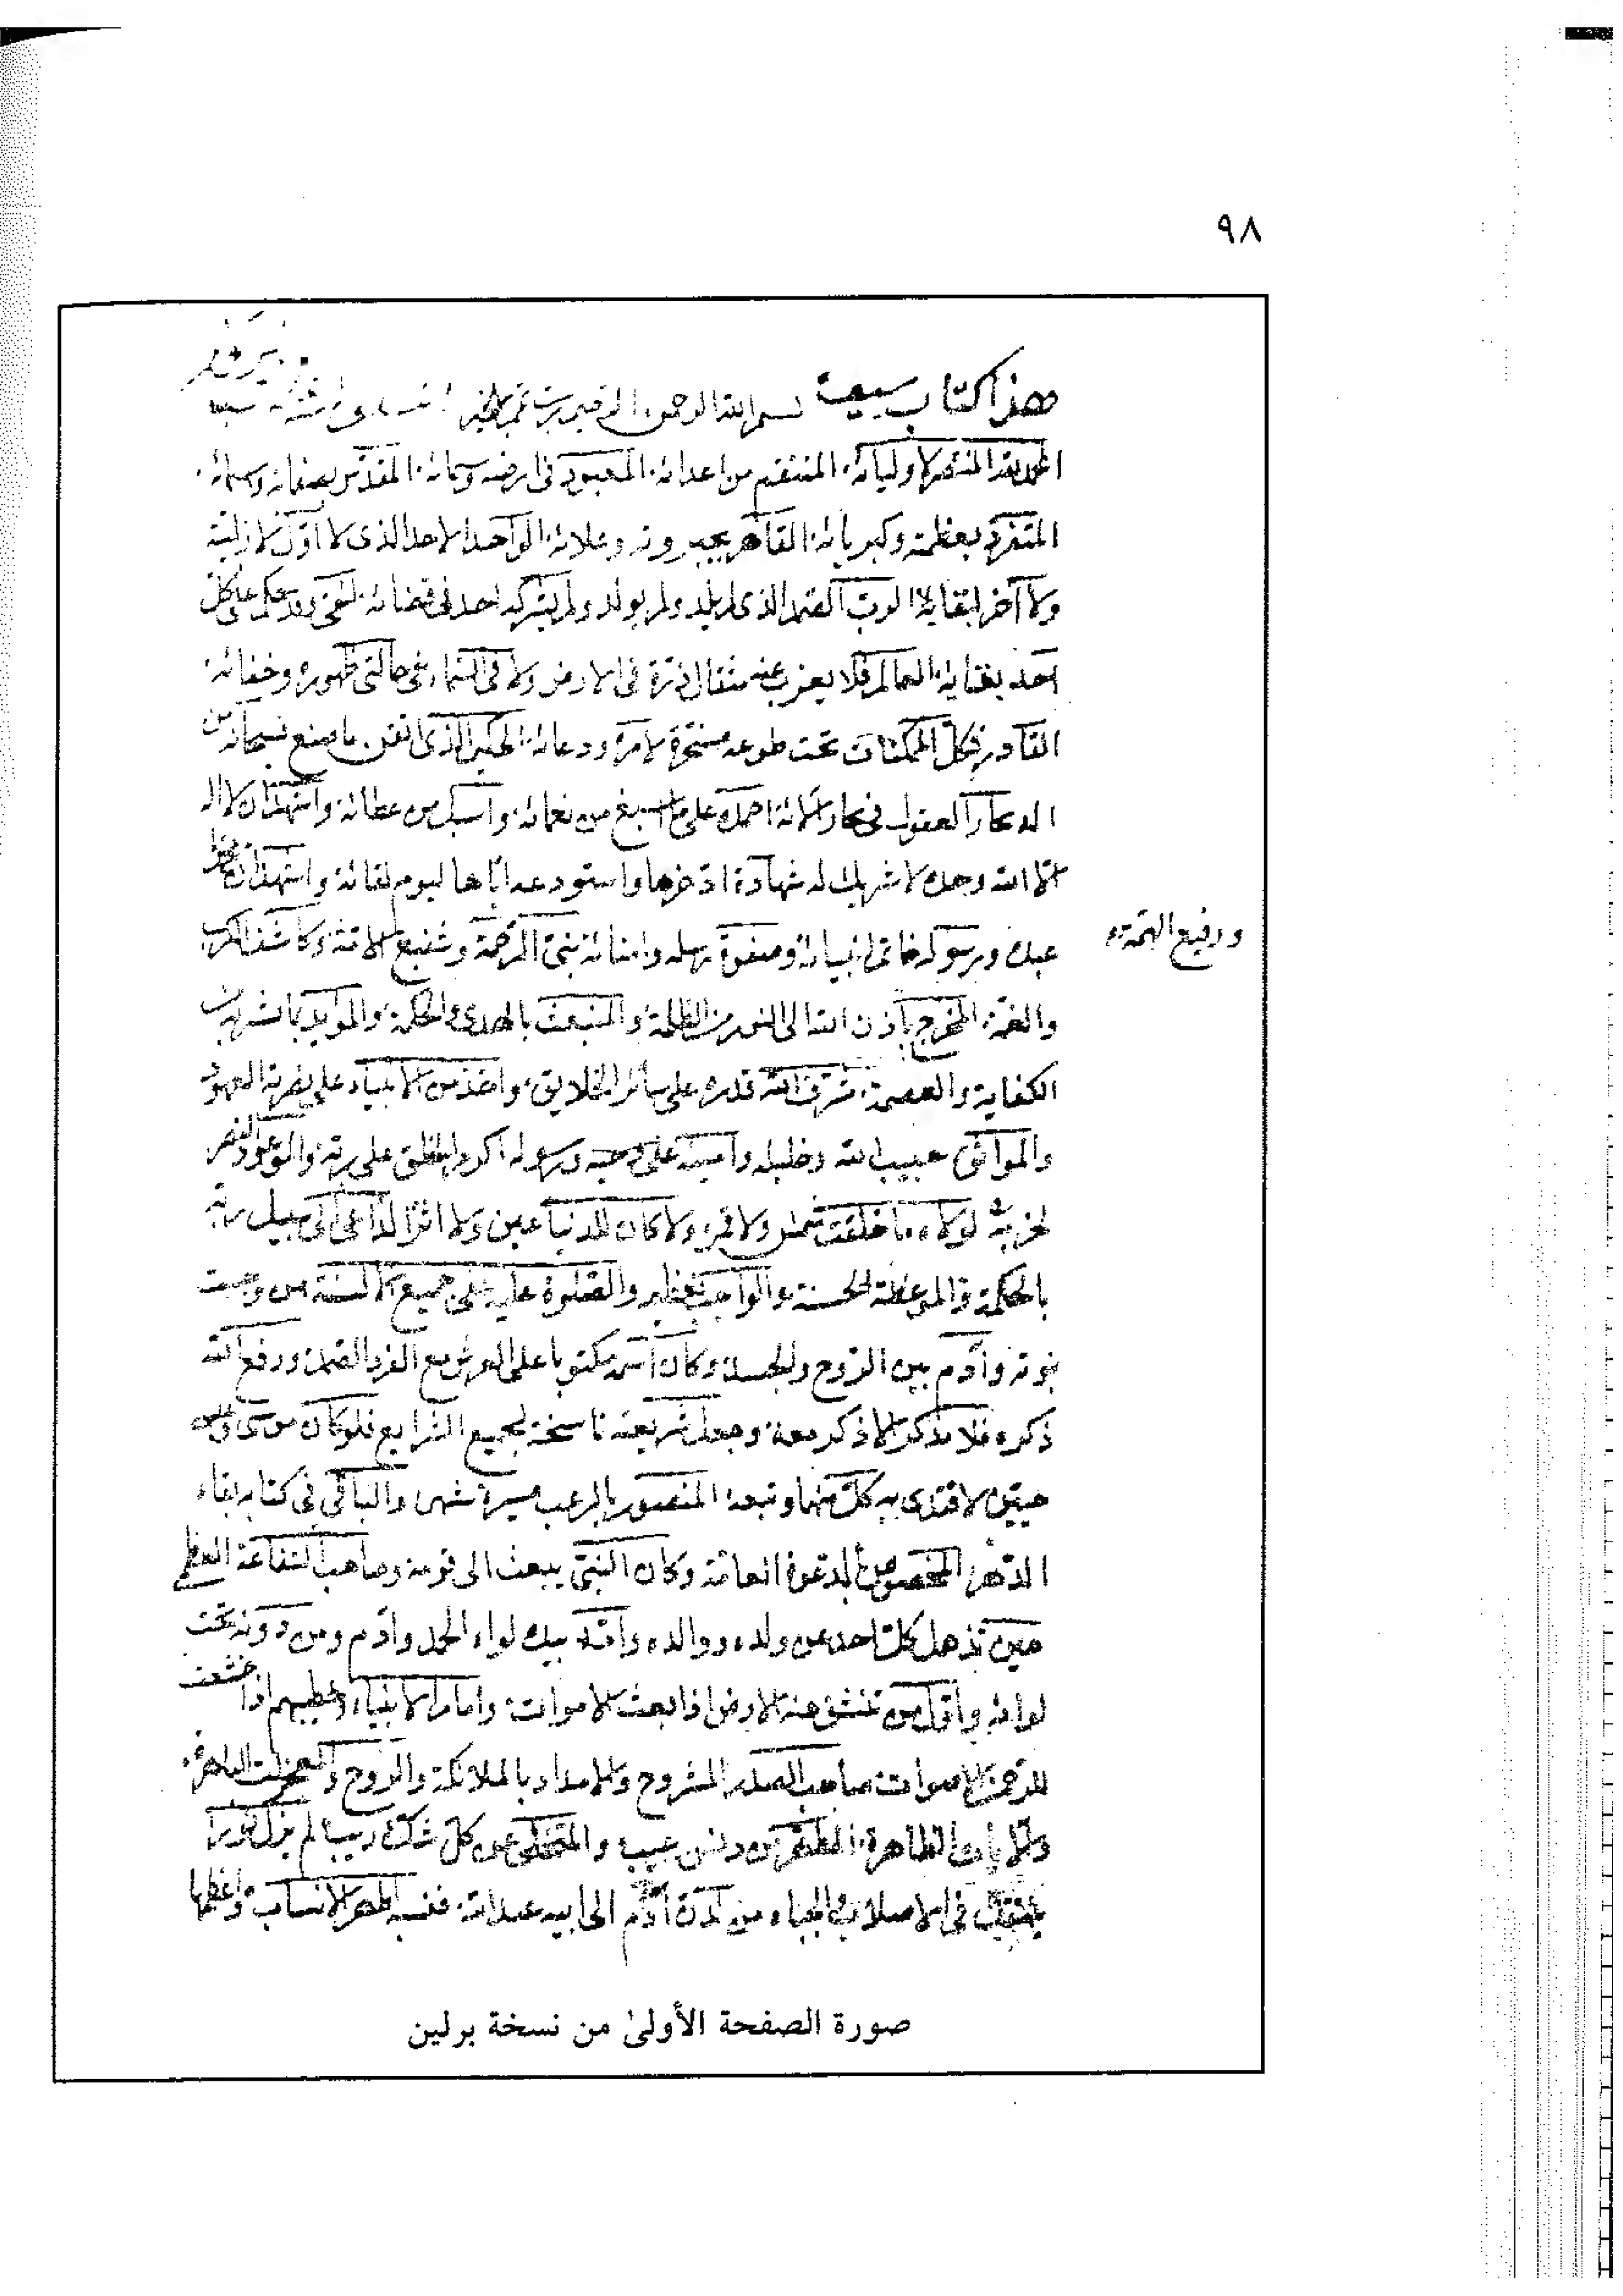 ٩٨
هذا كتاب بسم الله الرحمن الرحيم رب تمم بالخير
الحمد لله المنتصر لاوليائه المنتقم من اعدائه المعبود في ارضه وسمائه المقدس بصفاته واسمائه
المتفرد بعظمته وكبريائه القاهر بجبروته وعلائه الواحد الاحد الذي لا اول لازليته
ولا آخر لبقائه الرب الصمد الذي لم يلد ولم يولد ولم يشركه احد في قضائه على كل
احد بفنايه العالم فلا يعزب عنه مثقال ذرة في الارض ولا في السماء في حالتي ظهوره وخفائه
القادر فكل الممكنات تحت طوعه مسخرة لامره ودعائه الحكيم الذي اتقن ما صنع فسبحانه من
اله حار العقول في بحار آلائه احمده على ما اسبغ من نعمائه واسبل من عطائه واشهد ان لا اله
الا الله وحده لا شريك له شهادة ادخرها واستودعه اياها ليوم لقائه واشهد ان محمدا
عبده ورسوله خاتم انبيائه وصفوة رسله وامنائه نبي الرحمة وشفيع الامة وكاشف الكرب
ورفيع الهمة
والغمة المخرج باذن الله الى النور من الظلمة والمنبعث بالهدى والحكمة والمؤيد بما شهر من
الكفاية والعصمة شرف الله قدره على سائر الخلايق واخذ من الانبياء على نصرته العهود
والمواثق حبيب الله وخليله وامينه على وحيه ورسوله اكرم الخلق على ربه والموعود النصر
لحزبه لولاه ما خلقت شمس ولا قمر ولا كان للدنيا عين ولا اثر الداعي الى سبيل ربه
بالحكمة والموعظة الحسنة والواجب تعظيمه والصلوة عليه على جميع الالسنة من وجبت
نبوته وآدم بين الروح والجسد وكان اسمه مكتوبا على العرش مع الفرد الصمد ورفع الله
ذكره فلا يذكر الا ذكر معه وجعل شريعته ناسخة لجميع الشرايع فلو كان موسى
حيين لاقتدى به كل منهما وتبعه المنصور بالرعب مسيرة شهر والباقي في كتابه بقاء
الدهر المخصوص بالدعوة العامة وكان النبي يبعث الى قومه وصاحب الشفاعة العظمى
حين تذهل كل احد عن ولده ووالده وامه بيده لواء الحمد وآدم ومن دونه تحت
لوائه واول من تنشق عنه الارض اذا بعث الاموات وامام الانبياء وخطيبهم اذا خشعت
للرحمن الاصوات صاحب الصدر المشروح والامداد بالملائكة والروح والمعجزات الباهرة
والآيات الظاهرة المطهر من دنس عيب والمتخلى عن كل شك وريب لم يزل نورا
ينتقل في الاصلاب والجباه من لدن آدم الى ابيه عبد الله فنسبه اطهر الانساب واعظمها
صورة الصفحة الأولىٰ من نسخة برلين